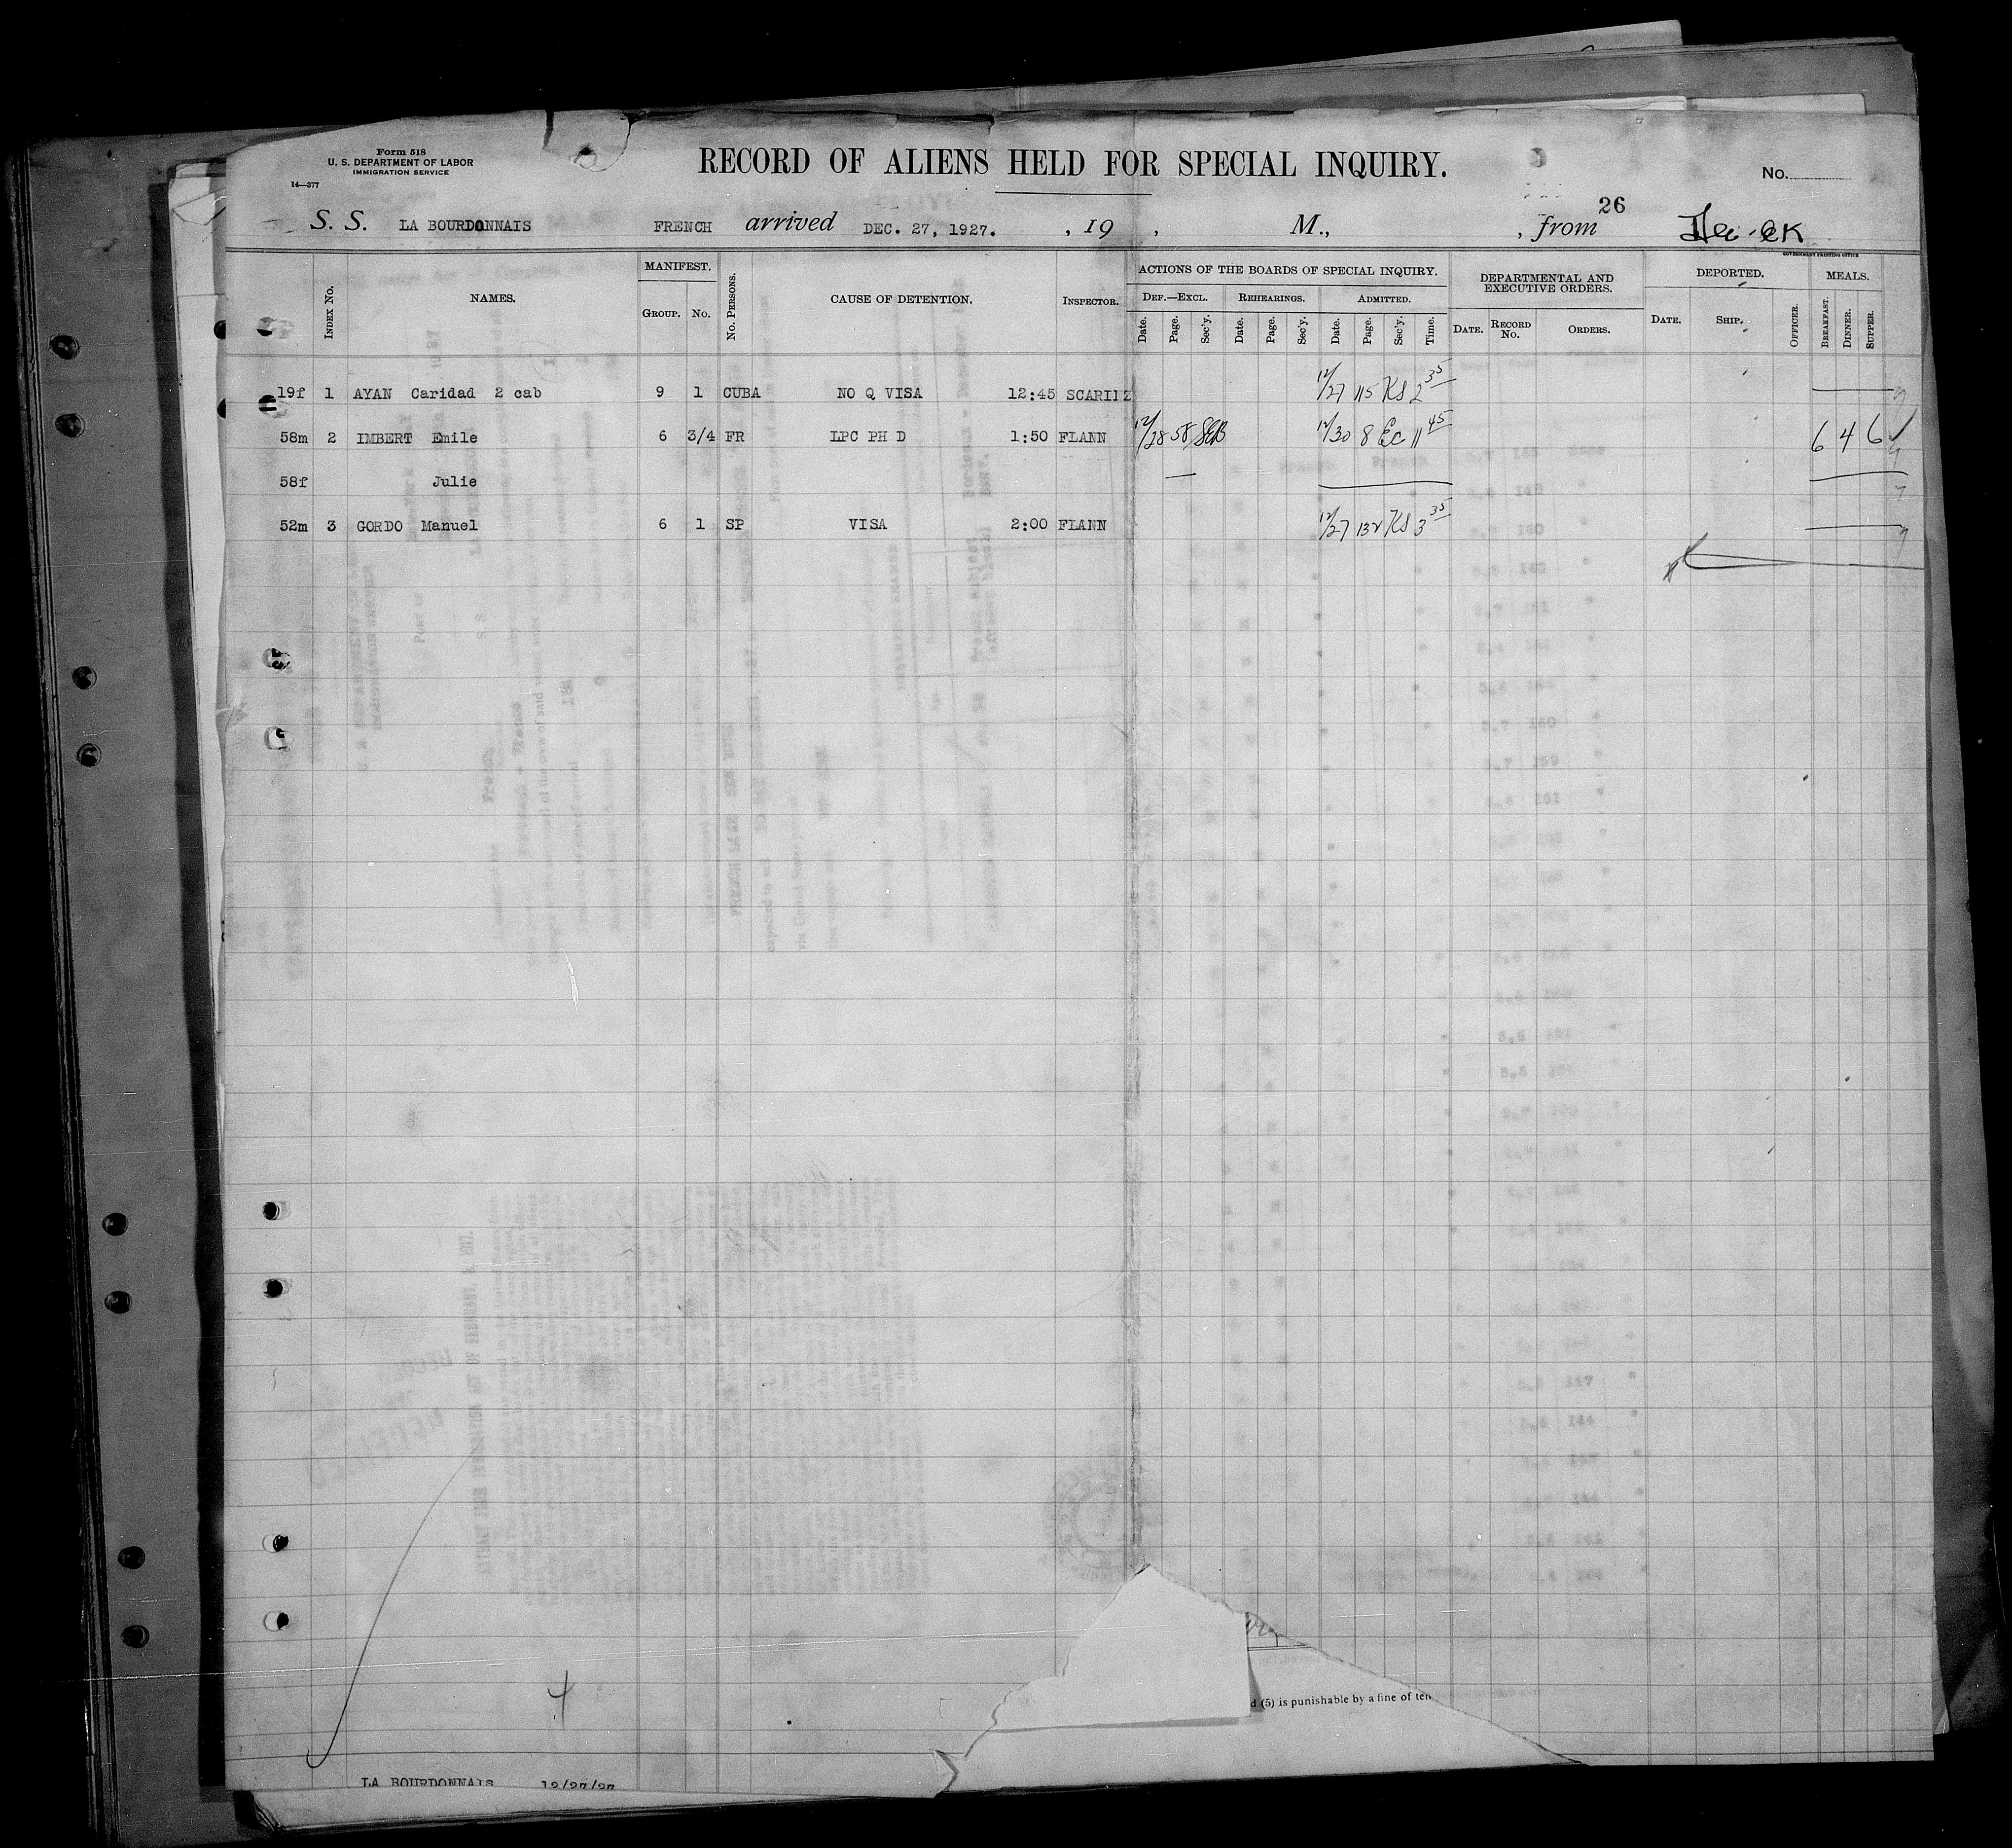 Form 518
U. S. DEPARTMENT OF LABOR
IMMIGRATION SERVICE
14—377
RECORD OF ALIENS HELD FOR SPECIAL INQUIRY.
No.
26
S. S. LA BOURDONNAIS FRENCH arrived DEC. 27, 1927. , 19 , M., , from
GOVERNMENT PRINTING OFFICE
INDEX No. NAMES. MANIFEST. GROUP. No. No. PERSONS. CAUSE OF DETENTION. INSPECTOR. ACTIONS OF THE BOARDS OF SPECIAL INQUIRY. DEPARTMENTAL AND EXECUTIVE ORDERS. DEPORTED. MEALS.
DEF.—EXCL. REHEARINGS. ADMITTED.
Date. Page. Sec'y. Date. Page. Sec'y. Date. Page. Sec'y. Time. DATE. RECORD No. ORDERS. DATE. SHIP. OFFICER. BREAKFAST. DINNER. SUPPER.
19f 1 AYAN Caridad 2 cab 9 1 CUBA NO Q VISA 12:45 SCARIIZ 12/27 115 KS 2 35
58m 2 IMBERT Emile 6 3/4 FR LPC PH D 1:50 FLANN 12/28 58 SEB 12/30 8 Ec 11 45 6 4 6
58f Julie
52m 3 GORDO Manuel 6 1 SP VISA 2:00 FLANN 12/27 132 KS 3 35
4
d (5) is punishable by a fine of ten
LA BOURDONNAIS 12/27/27